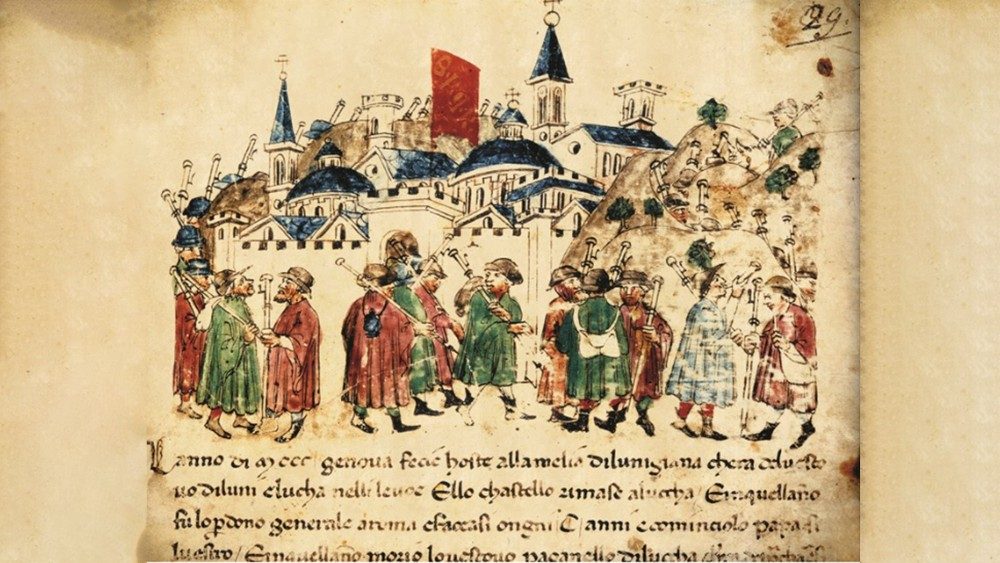 29.
Lanno di MCCC genova fecie hoste allamelia dilunigiana chera delvesco
vo diluni elucha nelli levoe Ello chastello rimase aluccha / Einquellano
fu lo pdono generale aroma efaccasi ongni C anni ecominciolo papa
/ Einquellano morio lovescovo paganello diluccha